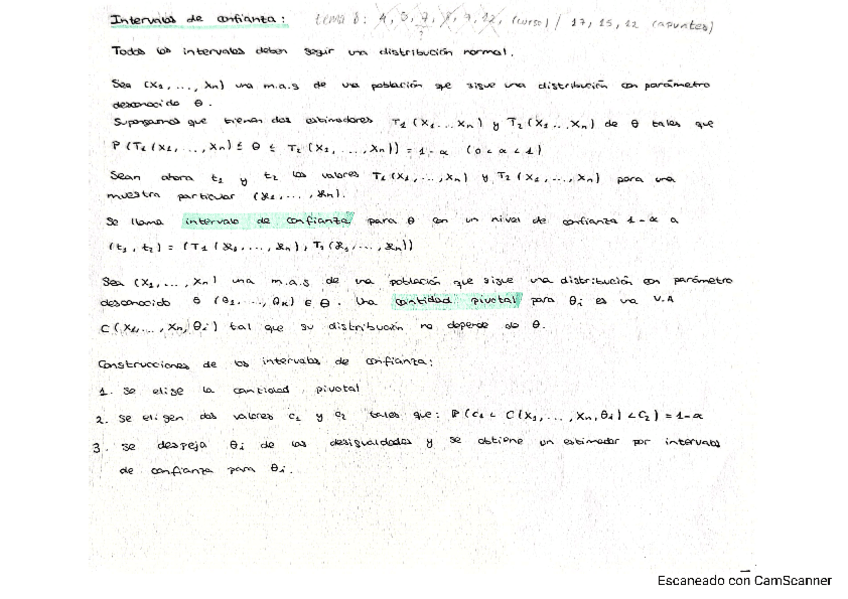 Intervalos de confianza: tema 8: 4, 5, 7, 8, 9, 12, (curso) / 17, 15, 12 (apuntes)
Todos los intervalos deben seguir una distribución normal.
Sea (X1, ..., Xn) una m.a.s de una población que sigue una distribución con parámetro
desconocido θ.
Supongamos que tienen dos estimadores T1 (X1 ... Xn) y T2 (X1 ... Xn) de θ tales que
P (T1 (X1, ..., Xn) ≤ θ ≤ T2 (X1, ..., Xn)) = 1 - α (0 < α < 1)
Sean ahora t1 y t2 los valores T1 (X1, ..., Xn) y T2 (X1, ..., Xn) para una
muestra particular (x1, ..., xn).
Se llama intervalo de confianza para θ con un nivel de confianza 1 - α a
(t1, t2) = (T1 (x1, ..., xn), T2 (x1, ..., xn))
Sea (X1, ..., Xn) una m.a.s de una población que sigue una distribución con parámetro
desconocido θ (θ1, ..., θk) ∈ Θ. Una cantidad pivotal para θi es una V.A
C (X1, ..., Xn, θi) tal que su distribución no depende de θ.
Construcciones de los intervalos de confianza:
1. Se elige la cantidad pivotal
2. Se eligen dos valores c1 y c2 tales que: P (c1 < C (X1, ..., Xn, θi) < c2) = 1 - α
3. Se despeja θi de las desigualdades y se obtiene un estimador por intervalos
de confianza para θi.
Escaneado con CamScanner